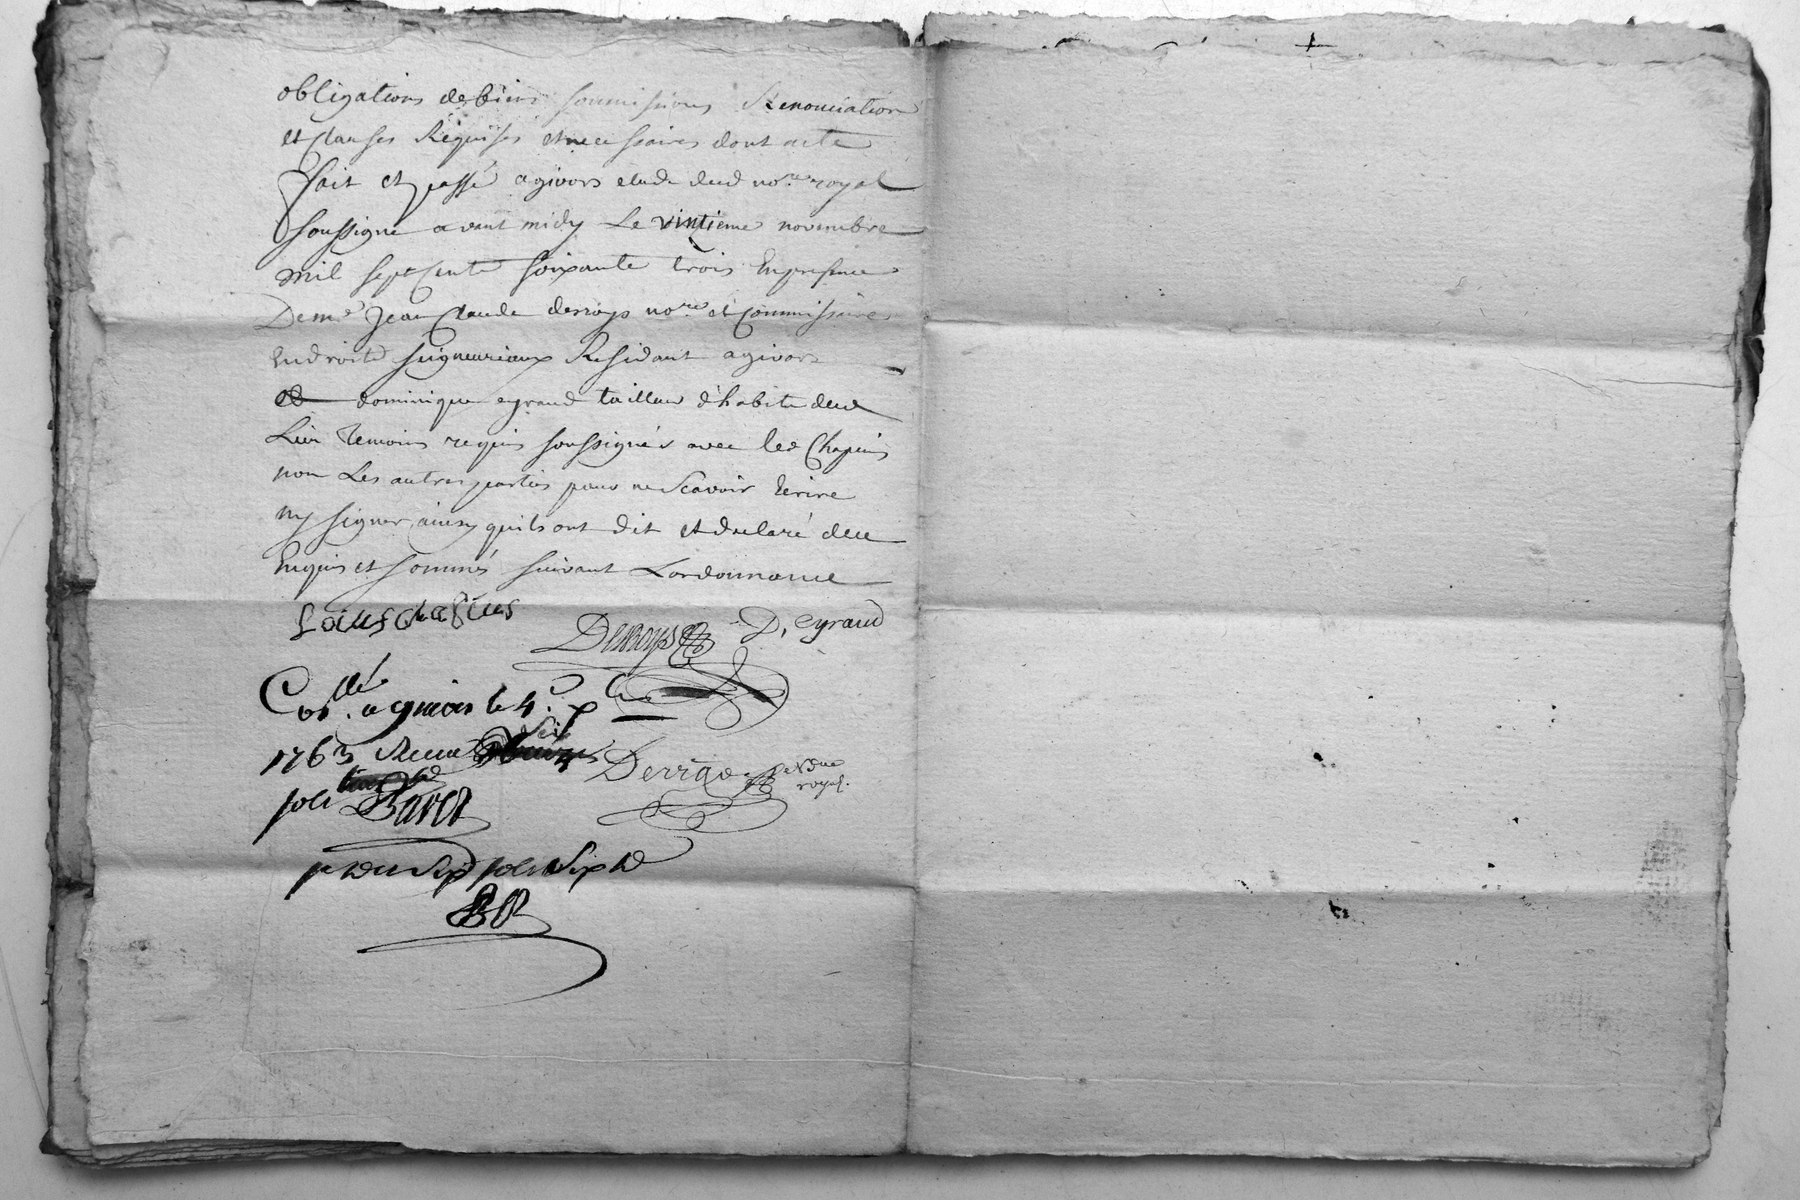 obligations de biens soumissions Renonciation
et Clauses Requises et necessaires dont acte
fait et passé a givors etude dud no.re royal
soussigné avant midy Le vintieme novembre
mil sept cents soixante trois En presence
De me Jean Claude desroys no.re et Commissaire
en droits seigneuriaux Residant a givors
et dominique eyraud tailleur d'habits dud
Lieu temoins requis soussignés avec led Chapuis
non Les autres parties pour ne Scavoir Ecrire
ny signer ainsy quils ont dit et declaré de ce
Enquis et sommés suivant Lordonnance
Desroys D. eyraud
Con.llé a givors le 4.e
1763 Receu six
sols
royal.